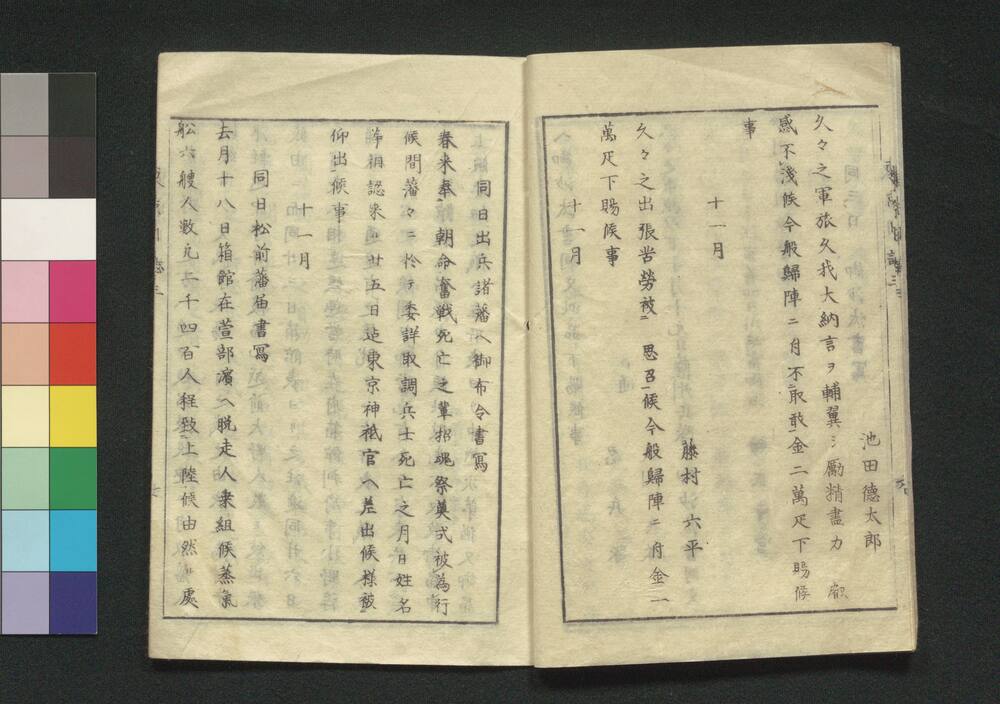 池田德太郎
久々之軍旅久我大納言ヲ輔翼シ勵精盡力 叡
感不淺候今般歸陣ニ付不取敢金二萬疋下賜候
事
十一月
藤村六平
久々之出張苦勞被 思召候今般歸陣ニ付金一
萬疋下賜候事
十一月
同日出兵諸藩へ御布令書寫
春来奉 朝命奮戰死亡之輩招魂祭奠式被為行
候間藩々ニ於テ委詳取調兵士死亡之月日姓名
等相認来ル廿五日迄東京神祇官へ差出候様被
仰出候事
十一月
同日松前藩届書寫
去月十八日箱館在萱部濱へ脱走人乗組候蒸氣
舩六艘人數凡二千四百人程致上陸候由然ル處